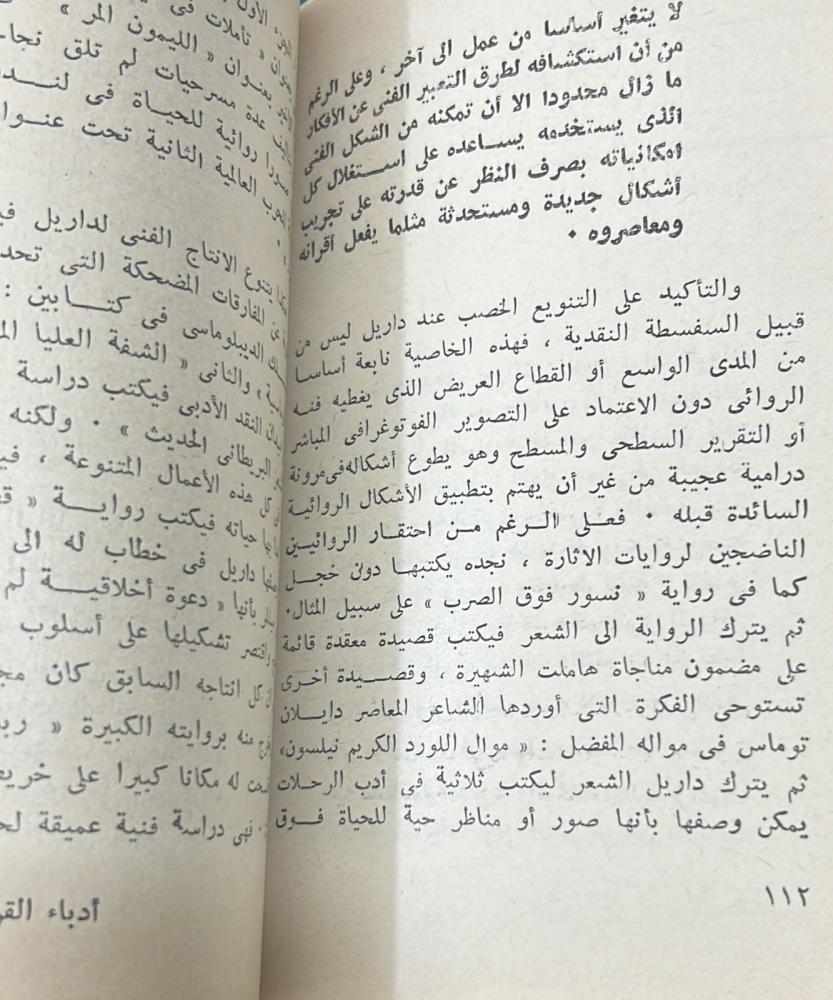 لا يتغير أساسا من عمل الى آخر ، وعلى الرغم
من أن استكشافه لطرق التعبير الفنى عن الأفكار
ما زال محدودا الا أن تمكنه من الشكل الفنى
الذى يستخدمه يساعده على استغلال كل
امكانياته بصرف النظر عن قدرته على تجريب
أشكال جديدة ومستحدثة مثلما يفعل أقرانه
ومعاصروه ٠
والتأكيد على التنويع الخصب عند داريل ليس من
قبيل السفسطة النقدية ، فهذه الخاصية نابعة أساسا
من المدى الواسع أو القطاع العريض الذى يغطيه فنه
الروائى دون الاعتماد على التصوير الفوتوغرافى المباشر
أو التقرير السطحى والمسطح وهو يطوع أشكاله فى مرونة
درامية عجيبة من غير أن يهتم بتطبيق الأشكال الروائية
السائدة قبله ٠ فعلى الرغم من احتقار الروائيين
الناضجين لروايات الاثارة ، نجده يكتبها دون خجل
كما فى رواية « نسور فوق الصرب » على سبيل المثال٠
ثم يترك الرواية الى الشعر فيكتب قصيدة معقدة قائمة
على مضمون مناجاة هاملت الشهيرة ، وقصيدة أخرى
تستوحى الفكرة التى أوردها الشاعر المعاصر دايلان
توماس فى مواله المفضل : « موال اللورد الكريم نيلسون»
ثم يترك داريل الشعر ليكتب ثلاثية فى أدب الرحلات
يمكن وصفها بأنها صور أو مناظر حية للحياة فوق
١١٢
الجزء الأول
« تأملات فى
بعنوان « الليمون المر »
عدة مسرحيات لم تلق نجا
روائية للحياة فى لنـد
الحرب العالمية الثانية تحت عنـوا
يتنوع الانتاج الفنى لداريل في
عن المفارقات المضحكة التى تحد
الديبلوماسى فى كتابين :
والثانى « الشفة العليا الم
النقد الأدبى فيكتب دراسة
البريطانى الحديث » ٠ ولكنه
كل هذه الأعمال المتنوعة ، في
حياته فيكتب رواية « ق
داريل فى خطاب له الى
بأنها « دعوة أخلاقية لم
تشكيلها على أسلوب
كل انتاجه السابق كان مج
منه بروايته الكبيرة « ربـ
له مكانا كبيرا على خريط
فهى دراسة فنية عميقة لح
أدباء القر